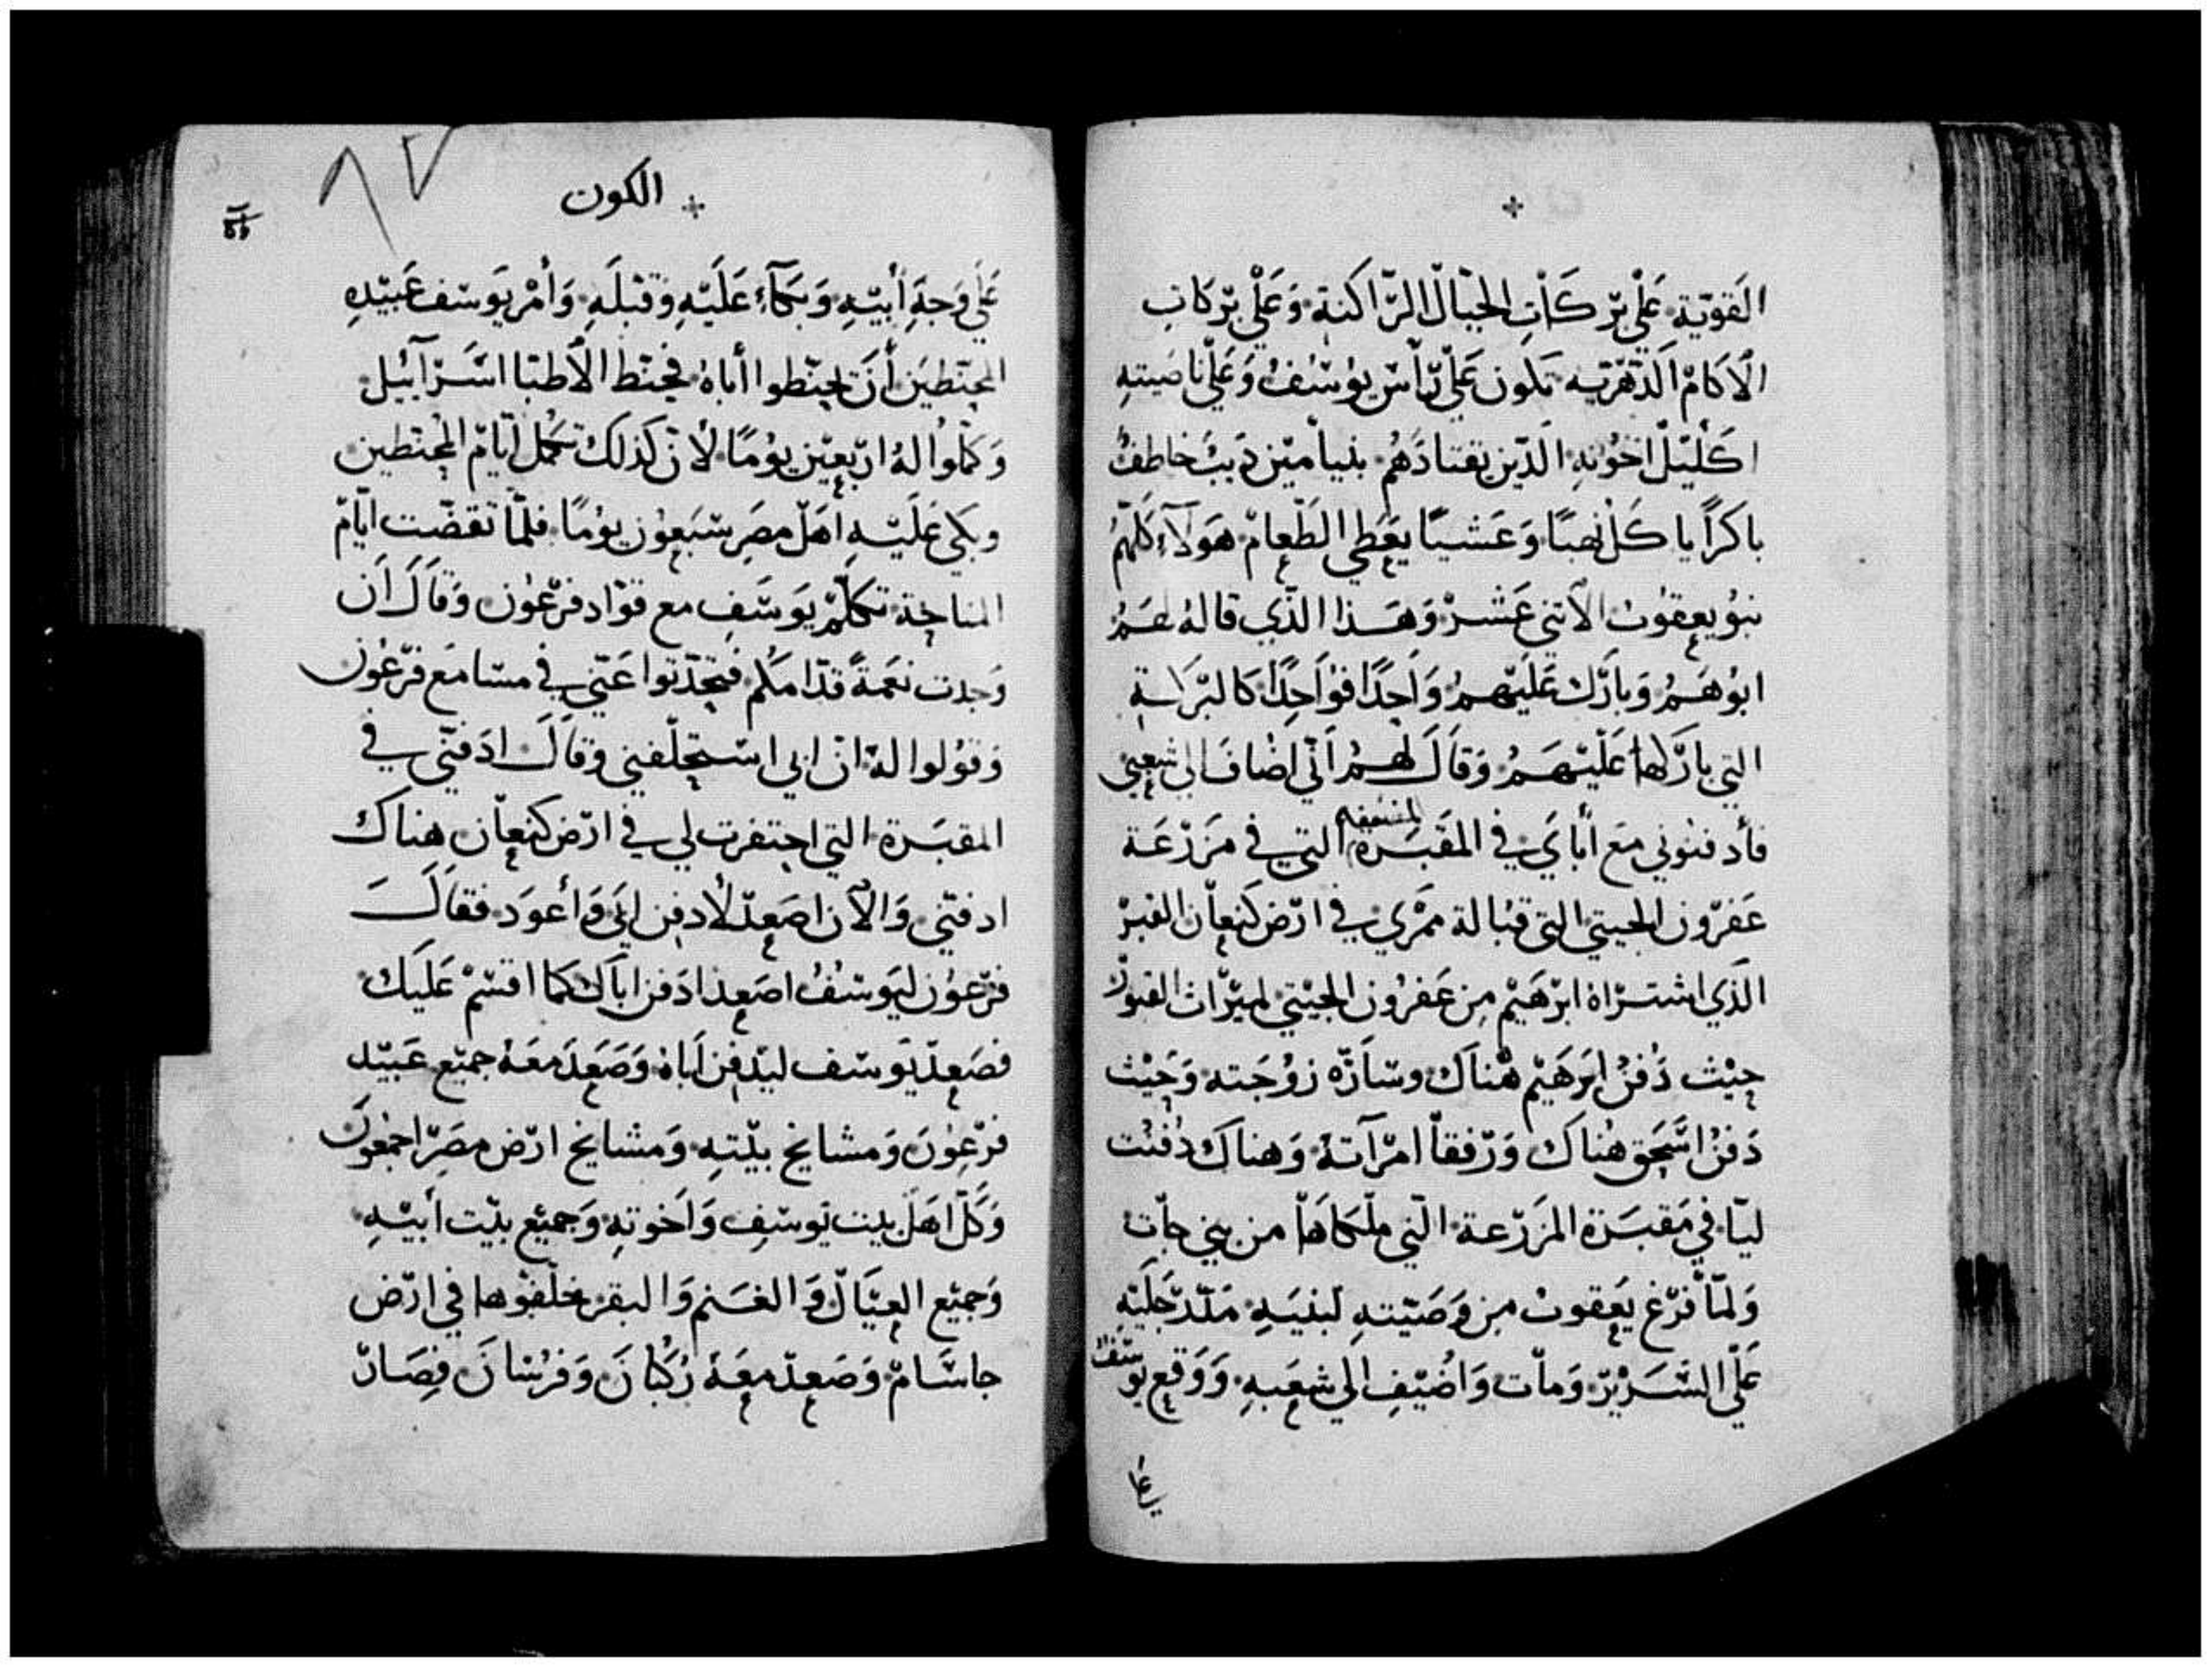 القوية على بركات الجبال الراكنة وعلى بركات
الاكام الدهرية تكون على راس يوسف وعلى ناصيته
اكليل اخوته الدين يقتادهم بنيامين ديب خاطف
باكرا ياكل نهبا وعشيا يعطي الطعام هولاء كلهم
بنو يعقوب الاتني عشر وهذا الذي قاله لهم
ابوهم وبارك عليهم واحدا فواحدا كالبركة
التي باركها عليهم وقال لهم اني اضاف الى شعبي
فأدفنوني مع أباي في المقبرة المضعفه التي في مزرعة
عفرون الحيتي التي قبالة ممري في ارض كنعان القبر
الذي اشتراه ابرهيم من عفرون الحيتي لميراث القبور
حيث دفن ابرهيم هناك وساره زوجته وحيث
دفن اسحق هناك ورفقا امرآته وهناك دفنت
ليا في مقبرة المزرعة التي ملكاها من بني حات
ولما فرغ يعقوب من وصيته لبنيه مدد رجليه
على السرير ومات واضيف الى شعبه ووقع يوسف
على
+ الكون
٨٢
على وجه أبيه وبكآء عليه وقبله وأمر يوسف عبيده
المحنطين أن يحنطوا أباه فحنط الأطبا اسرآئيل
وكملوا له اربعين يوما لأن كذلك تكمل ايام المحنطين
وبكى عليه اهل مصر سبعون يوما فلما تقضت ايام
المناحة تكلم يوسف مع قواد فرعون وقال ان
وجدت نعمة قدامكم فتحدتوا عني في مسامع فرعون
وقولوا له ان ابي استحلفني وقال ادفني في
المقبرة التي احتفرت لي في ارض كنعان هناك
ادفني والآن اصعد لأدفن ابي وأعود فقال
فرعون ليوسف اصعد ادفن اباك كما اقسم عليك
فصعد يوسف ليدفن اباه وصعد معه جميع عبيد
فرعون ومشايخ بيته ومشايخ ارض مصر اجمعون
وكل اهل بيت يوسف واخوته وجميع بيت أبيه
وجميع العيال والغنم والبقر خلفوها في ارض
جاسام وصعد معه ركبان وفرسان فصار